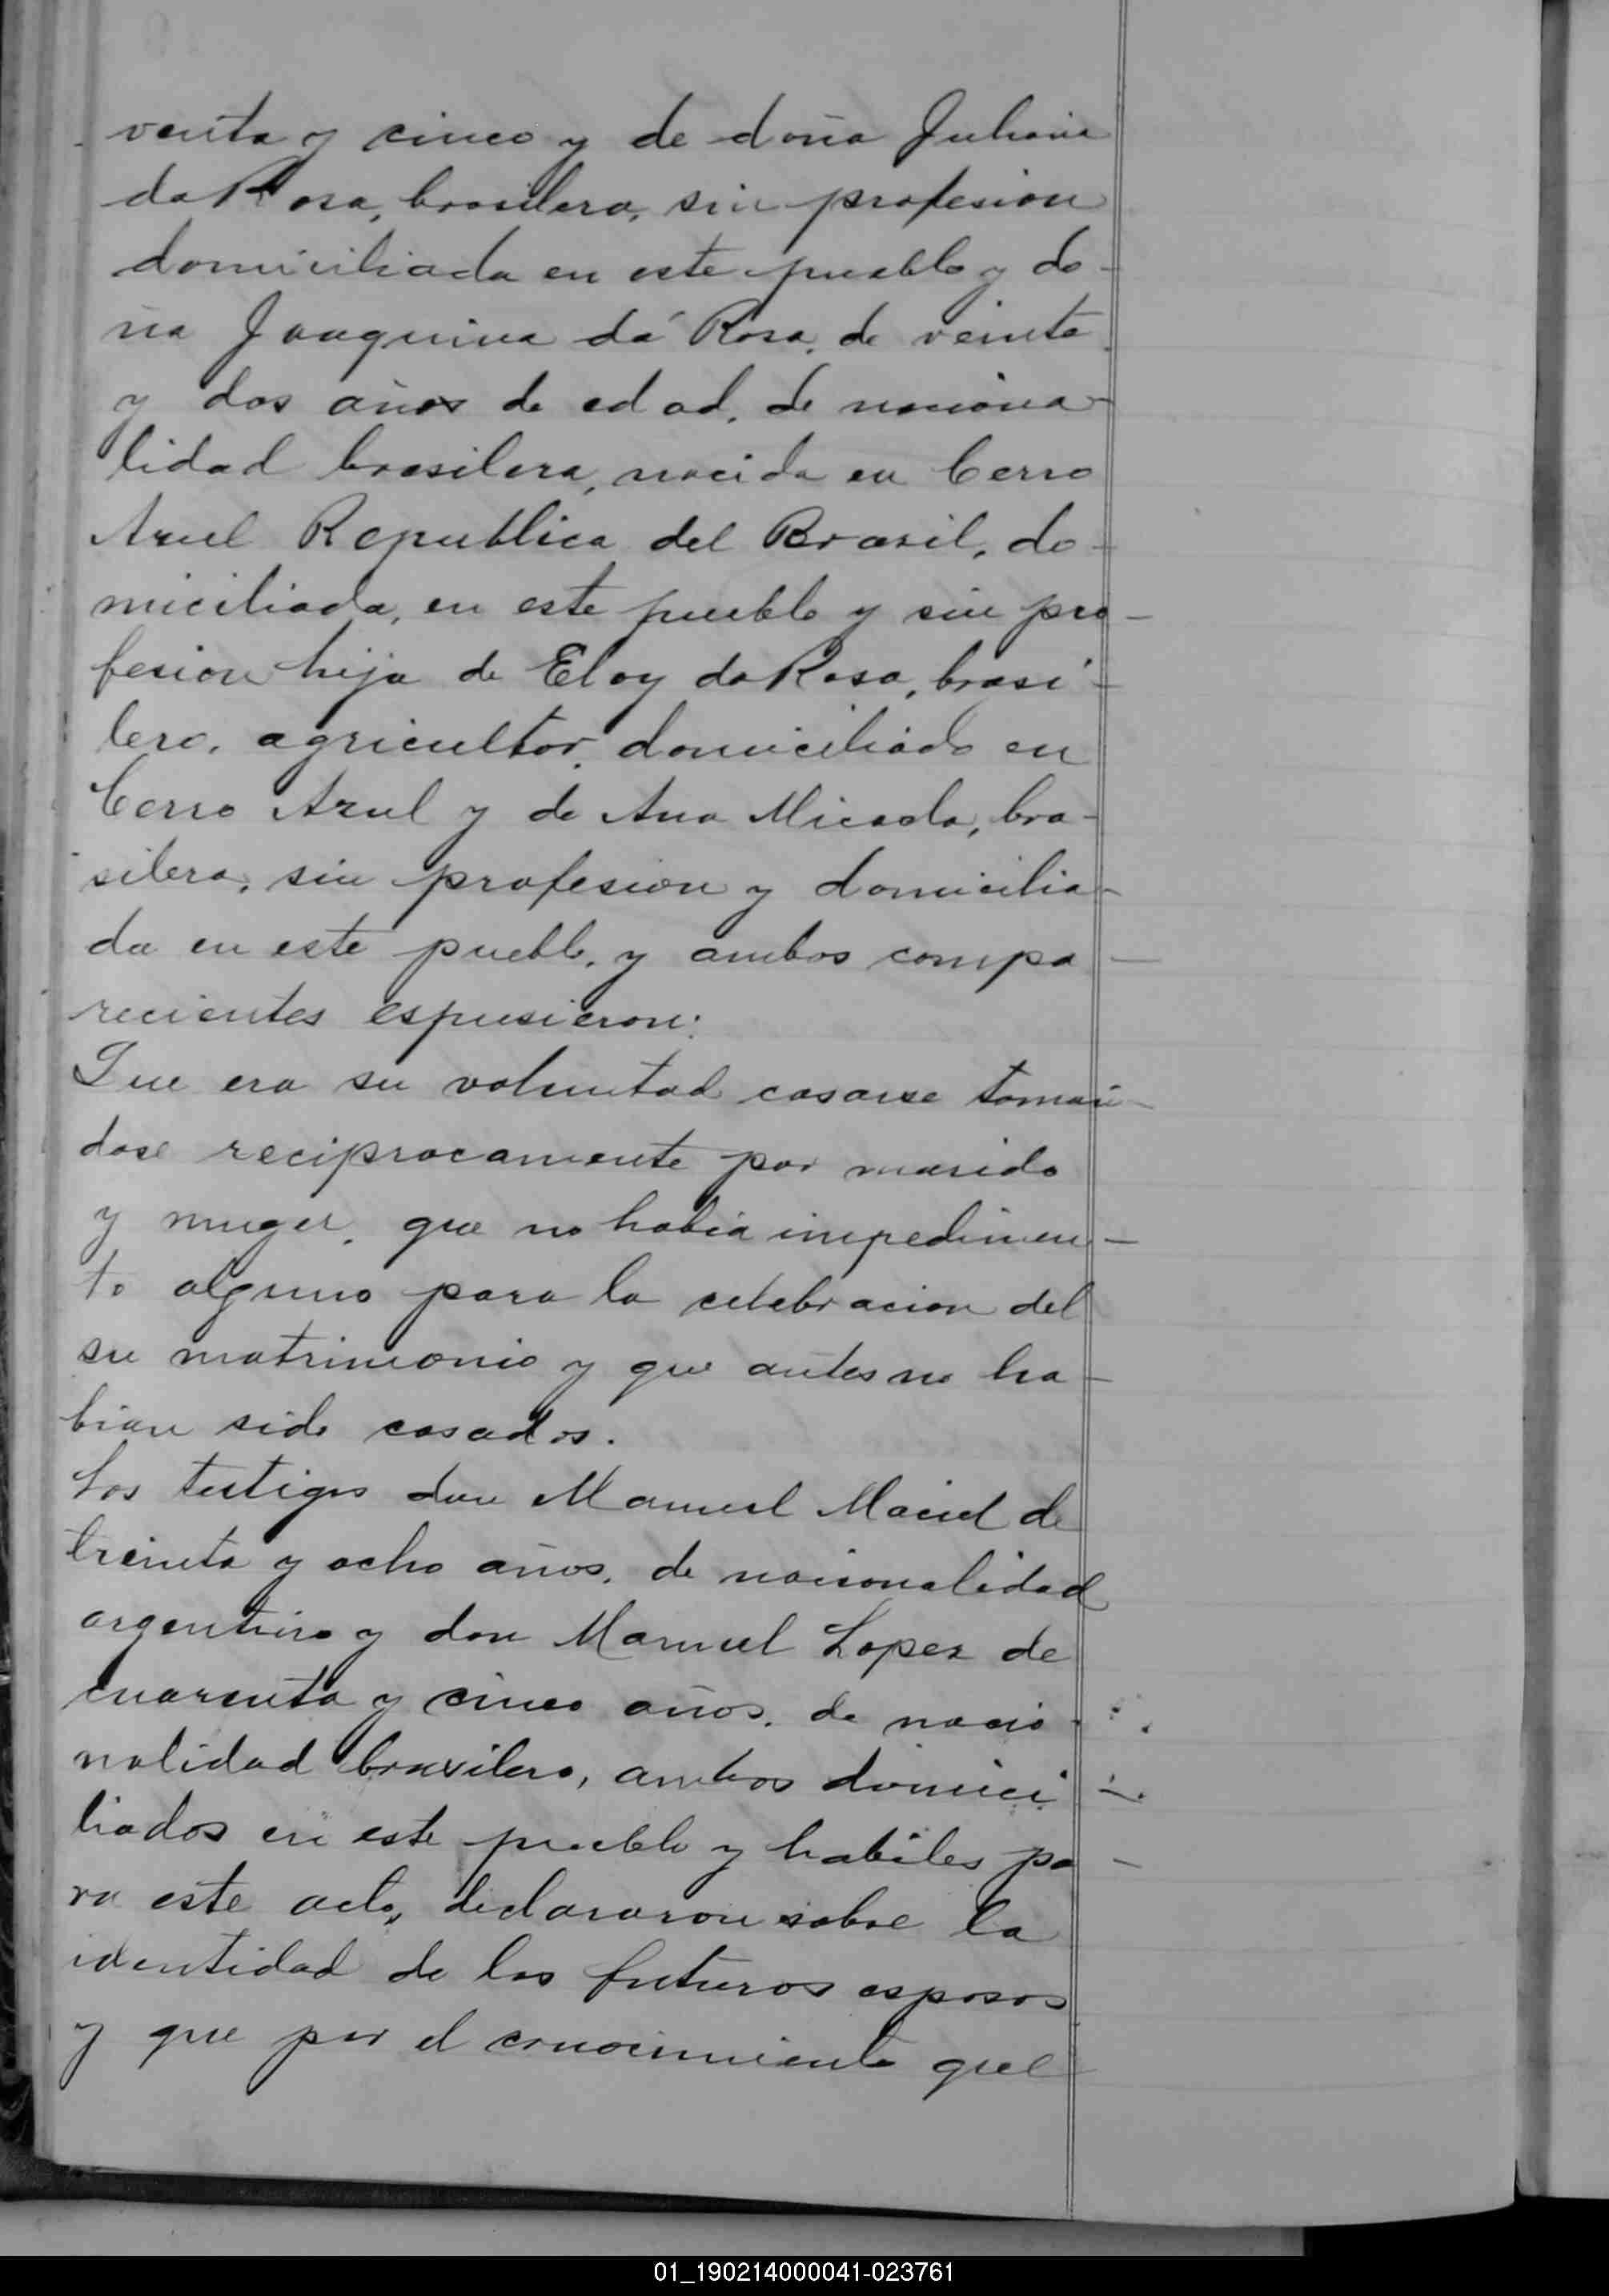 venta y cinco y de doña Juliana
da Rosa, brasilera, sin profesion
domiciliada en este pueblo y do-
ña Joaquina dá Rosa, de veinte
y dos años de edad, de naciona-
lidad brasilera, nacida en Cerro
Azul Republica del Brasil, do-
miciliada, en este pueblo y sin pro-
fesion hija de Eloy da Rosa, brasi-
lero, agricultor, domiciliado en
Cerro Azul y de Ana bra-
silera, sin profesion y domicilia-
da en este pueblo, y ambos compa-
recientes espusieron:
Que era su voluntad casarse toman-
dose reciprocamente por marido
y muger, que no habia impedimen-
to alguno para la celebracion del
su matrimonio y que antes no ha-
bian sido casados.
Los testigos don Manuel Maciel de
treinta y ocho años, de nacionalidad
argentino y don Manuel Lopez de
cuarenta y cinco años, de nacio-
nalidad brasilero, ambos domici-
liados en este pueblo y habiles pa-
ra este acto, declararon sobre la
identidad de los futuros esposos
y que por el conocimiento que
01_190214000041-023761